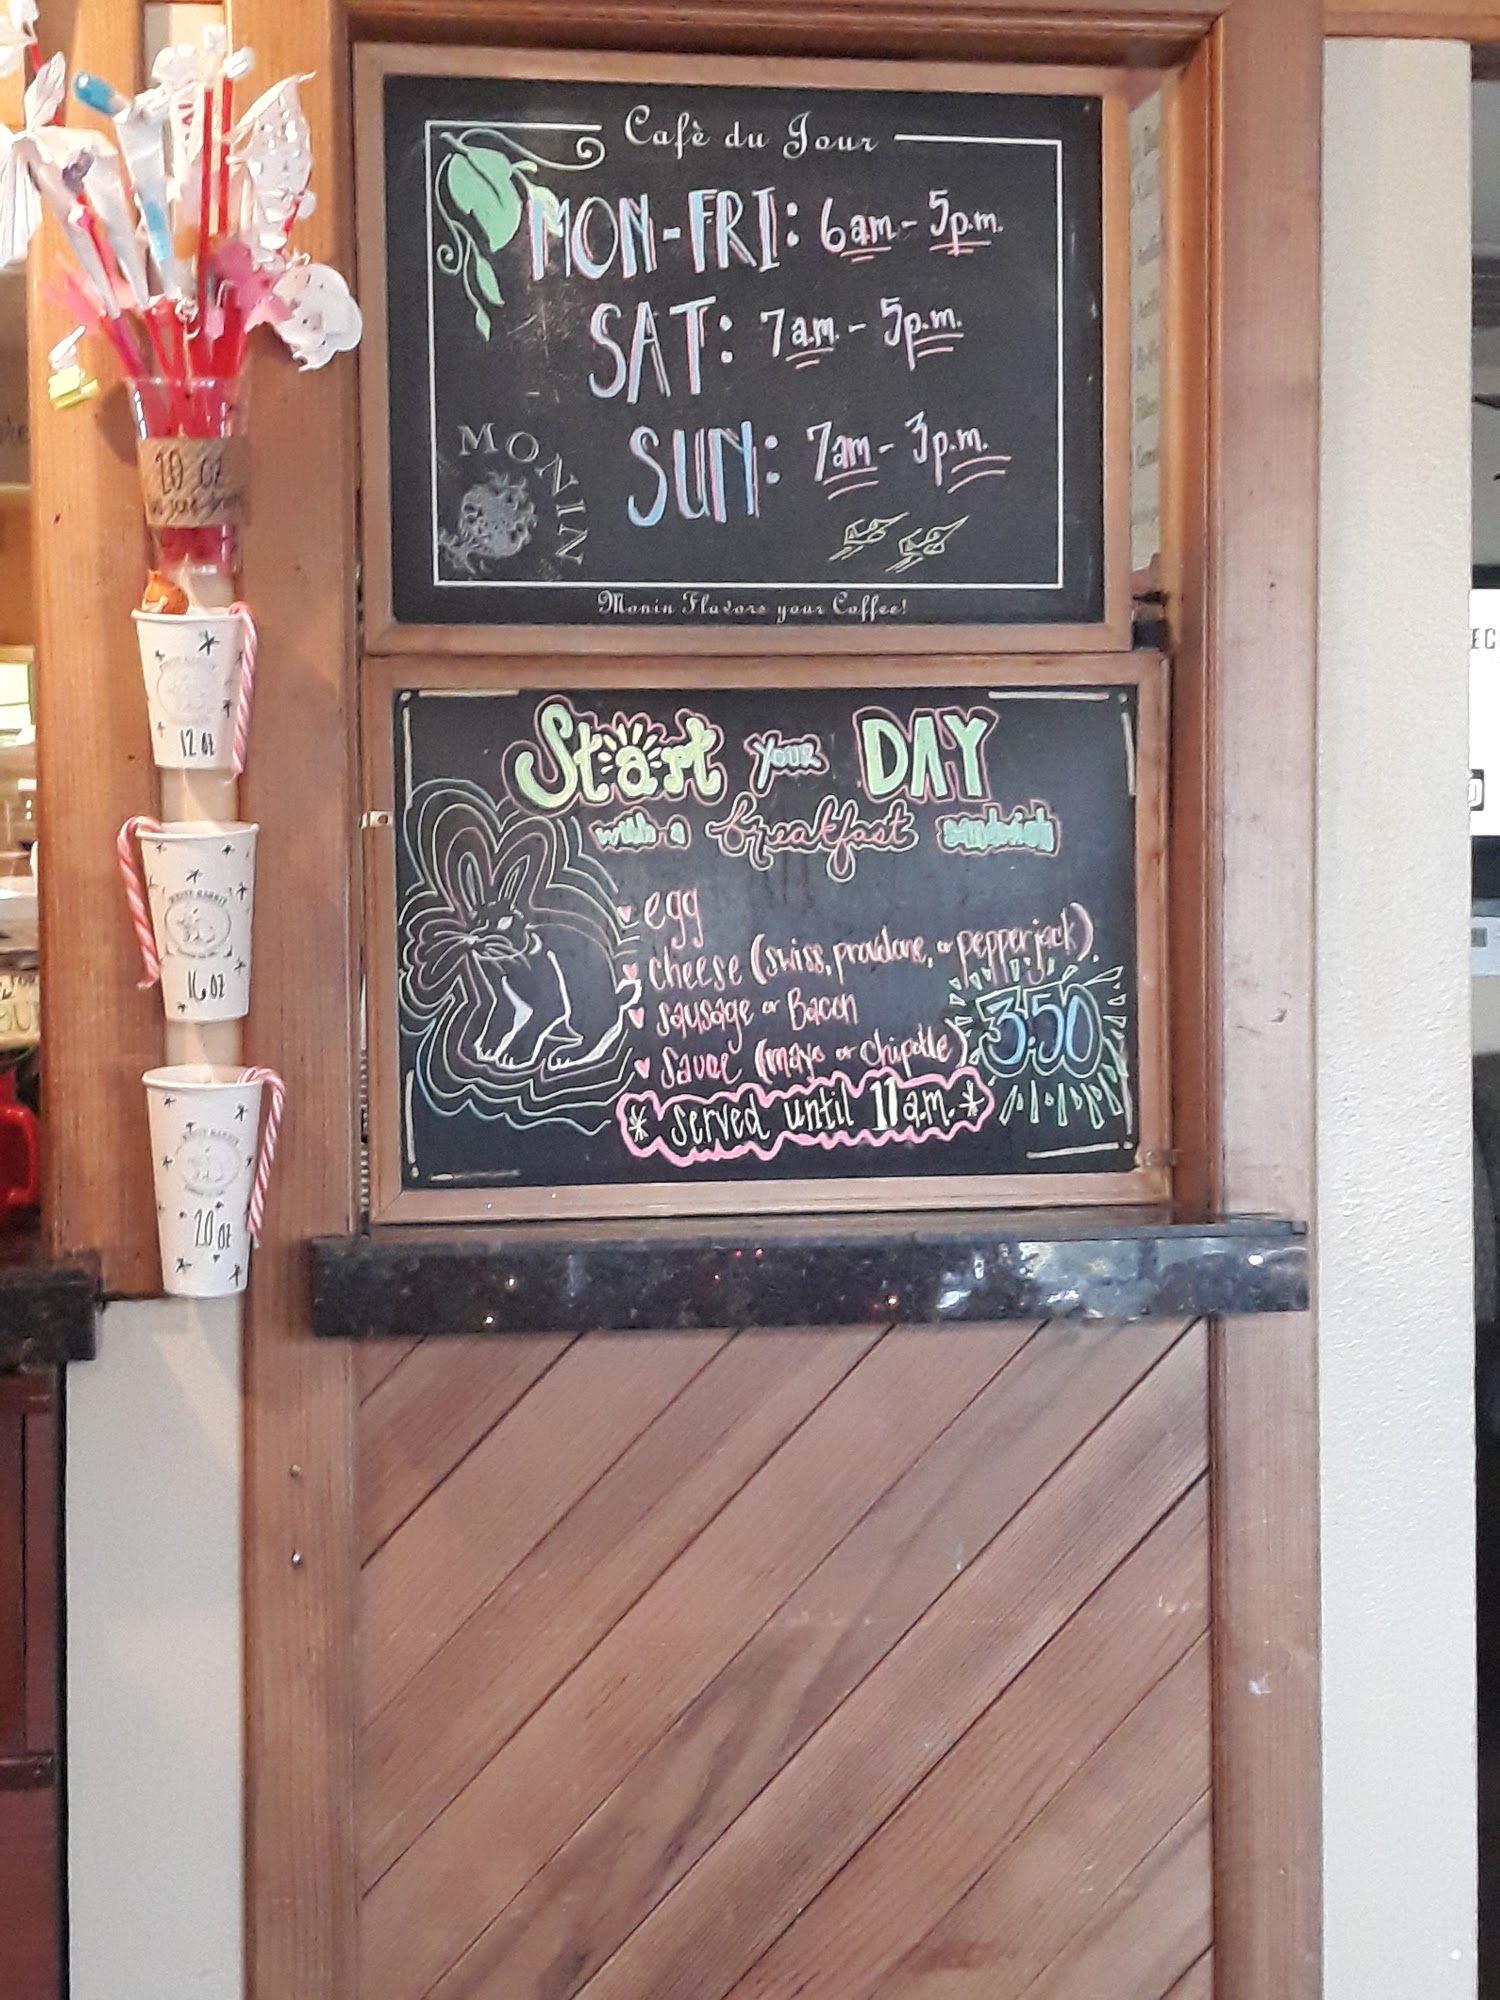 Cafè du Jour
MON-FRI: 6am - 5p.m.
SAT: 7a.m. - 5p.m.
SUN: 7am - 3p.m.
MONIN
Monin Flavors your Coffee!
Start your DAY
with a breakfast sandwich
egg
cheese (swiss, provolone, or pepperjack)
sausage or Bacon
sauce (mayo or chipotle)
3.50
* served until 11 a.m. *
20 oz
12 oz
WHITE RABBIT
16 oz
WHITE RABBIT
20 oz
EC